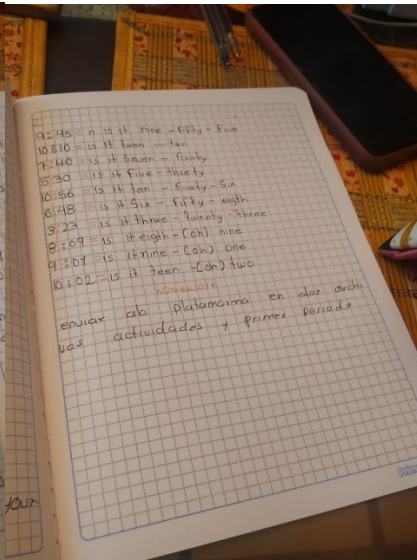 9:45 = n is it nine - fifty - five
10:10 = is it teen - ten
7:40 = is it Seven - Fourty
5:30 = is it Five - thirety
10:56 = is it ten - Fivety - Six
6:48 = is it Six - Fifty - eigth
3:23 = is it three - twenty - three
8:09 = is it eigth - (oh) nine
9:01 = is it nine - (oh) one
10:02 = is it teen - (oh) two
homework
enviar ala plataforma en dos archi
vos actividades y primer periodo
your